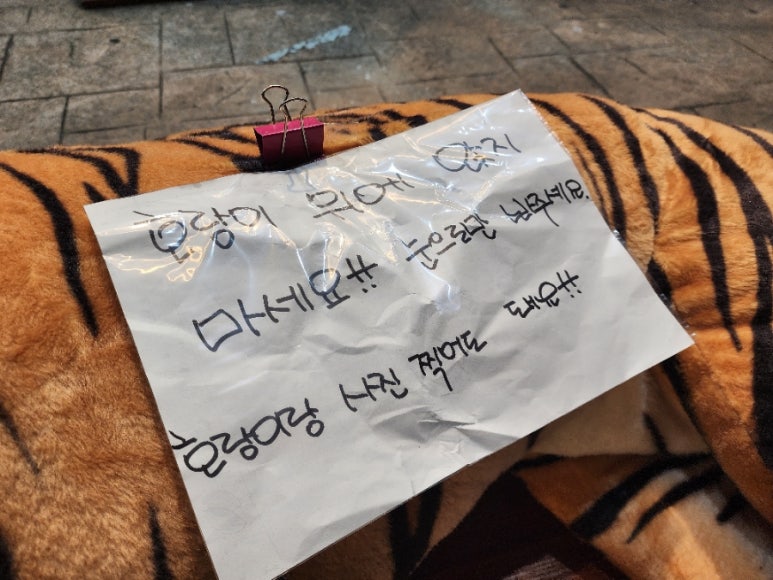 호랑이 위에 앉지
마세요!! 눈으로만 봐주세요.
호랑이랑 사진 찍어도 돼유!!